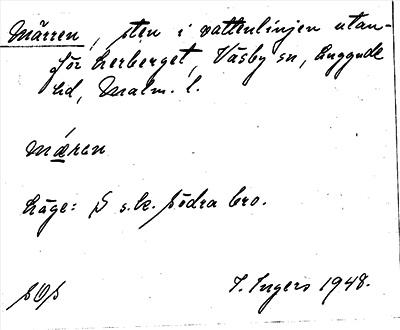 Märren, sten i vattenlinjen utan-
för Lerberget, Väsby sn, Luggude
hd, Malm. l.
mǽren
Läge: S s.k. södra bro.
I. Ingers 1948.